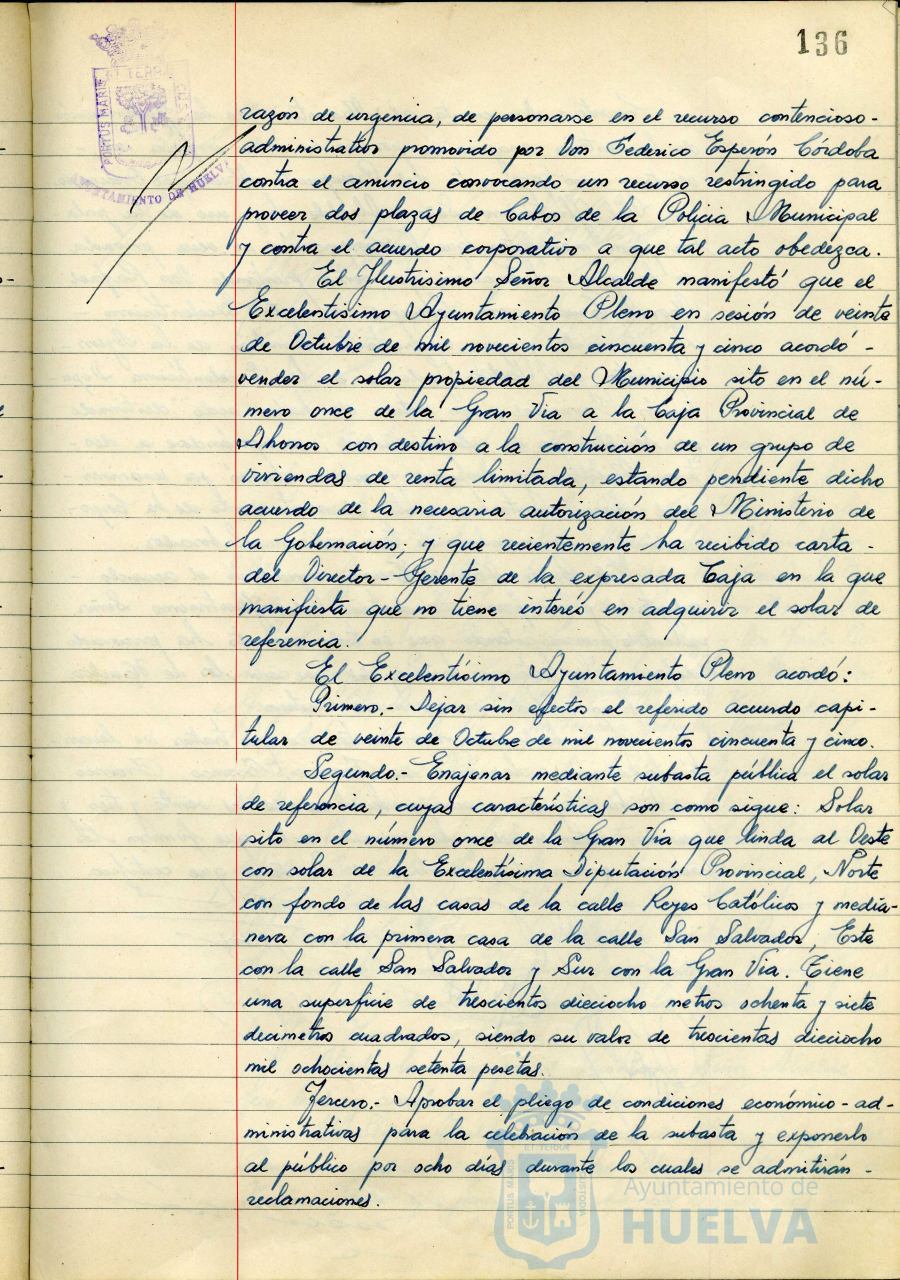 136
PORTUS MARIS ET TERRAE CUSTODIA
AYUNTAMIENTO DE HUELVA
razón de urgencia, de personarse en el recurso contencioso-
administrativo promovido por Don Federico Esperón Córdoba
contra el anuncio convocando un recurso restringido para
proveer dos plazas de Cabos de la Policia Municipal
y contra el acuerdo corporativo a que tal acto obedezca.
El Ilustrisimo Señor Alcalde manifestó que el
Excelentisimo Ayuntamiento Pleno en sesión de veinte
de Octubre de mil novecientos cincuenta y cinco acordó -
vender el solar propiedad del Municipio sito en el nú-
mero once de la Gran Via a la Caja Provincial de
Ahorros con destino a la construcción de un grupo de
viviendas de renta limitada, estando pendiente dicho
acuerdo de la necesaria autorización del Ministerio de
la Gobernación; y que recientemente ha recibido carta -
del Director-Gerente de la expresada Caja en la que
manifiesta que no tiene interés en adquirir el solar de
referencia.
El Excelentísimo Ayuntamiento Pleno acordó:
Primero.- Dejar sin efectos el referido acuerdo capi-
tular de veinte de Octubre de mil novecientos cincuenta y cinco.
Segundo.- Enajenar mediante subasta pública el solar
de referencia, cuyas características son como sigue: Solar
sito en el número once de la Gran Vía que linda al Oeste
con solar de la Excelentísima Diputación Provincial, Norte
con fondo de las casas de la calle Reyes Católicos y media-
nera con la primera casa de la calle San Salvador, Este
con la calle San Salvador y Sur con la Gran Via. Tiene
una superficie de trescientos dieciocho metros ochenta y siete
decimetros cuadrados, siendo su valor de trescientas dieciocho
mil ochocientas setenta pesetas.
Tercero.- Aprobar el pliego de condiciones económico-ad-
ministrativas para la celebración de la subasta y exponerlo
al público por ocho días durante los cuales se admitirán -
reclamaciones.
Ayuntamiento de
HUELVA